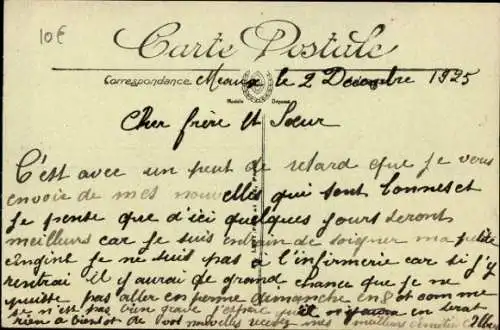 10€
Carte Postale
Correspondance Meaux le 2 Decembre 1925
Modèle Déposé
Cher frère et Sœur
C'est avec un peut de retard que je vous
envoie de mes nouvelles qui sont bonnes et
je pense que d'ici quelques jours seront
meilleurs car je suis entrain de soigner ma petite
engint je ne suis pas à l'infirmerie car si j'y
rentrai il y aurai de grand chance que je ne
puisse pas aller en perme dimanche en 8 et comme
se n'est pas bien grave j'espère qu'il n'y aura en
rien a bientot de vos nouvelles recevez mes meilleurs